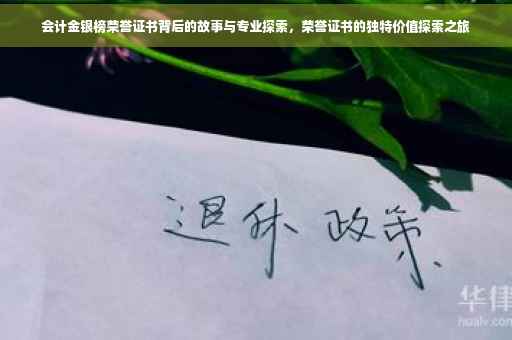 会计金银榜荣誉证书背后的故事与专业探索，荣誉证书的独特价值探索之旅
退休 政策
华律
hualv.com